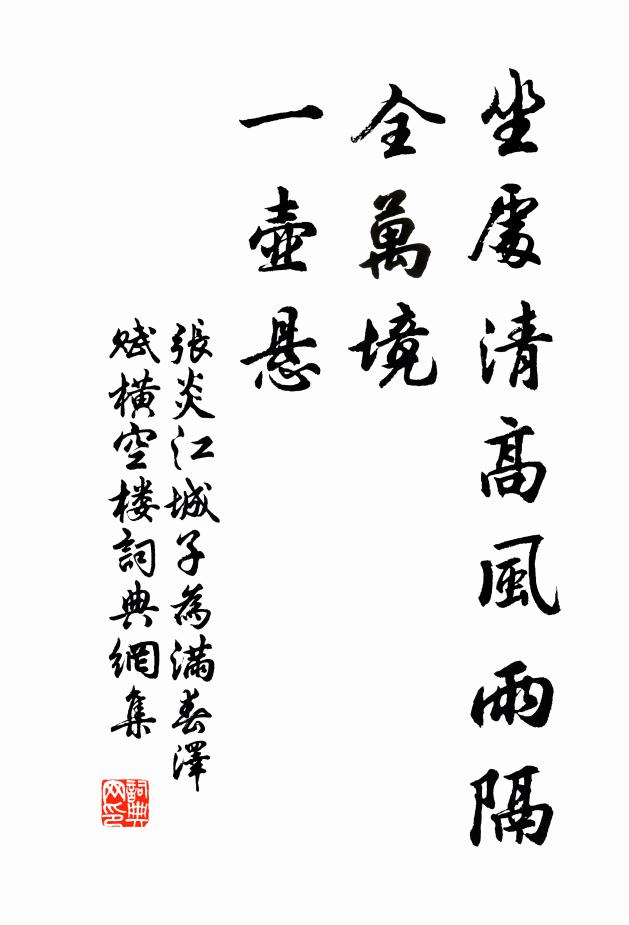 坐處清高風雨隔
全萬境
一壺悬
張炎江城子為满春澤
赋橫空楼詞典網集
詞典网印